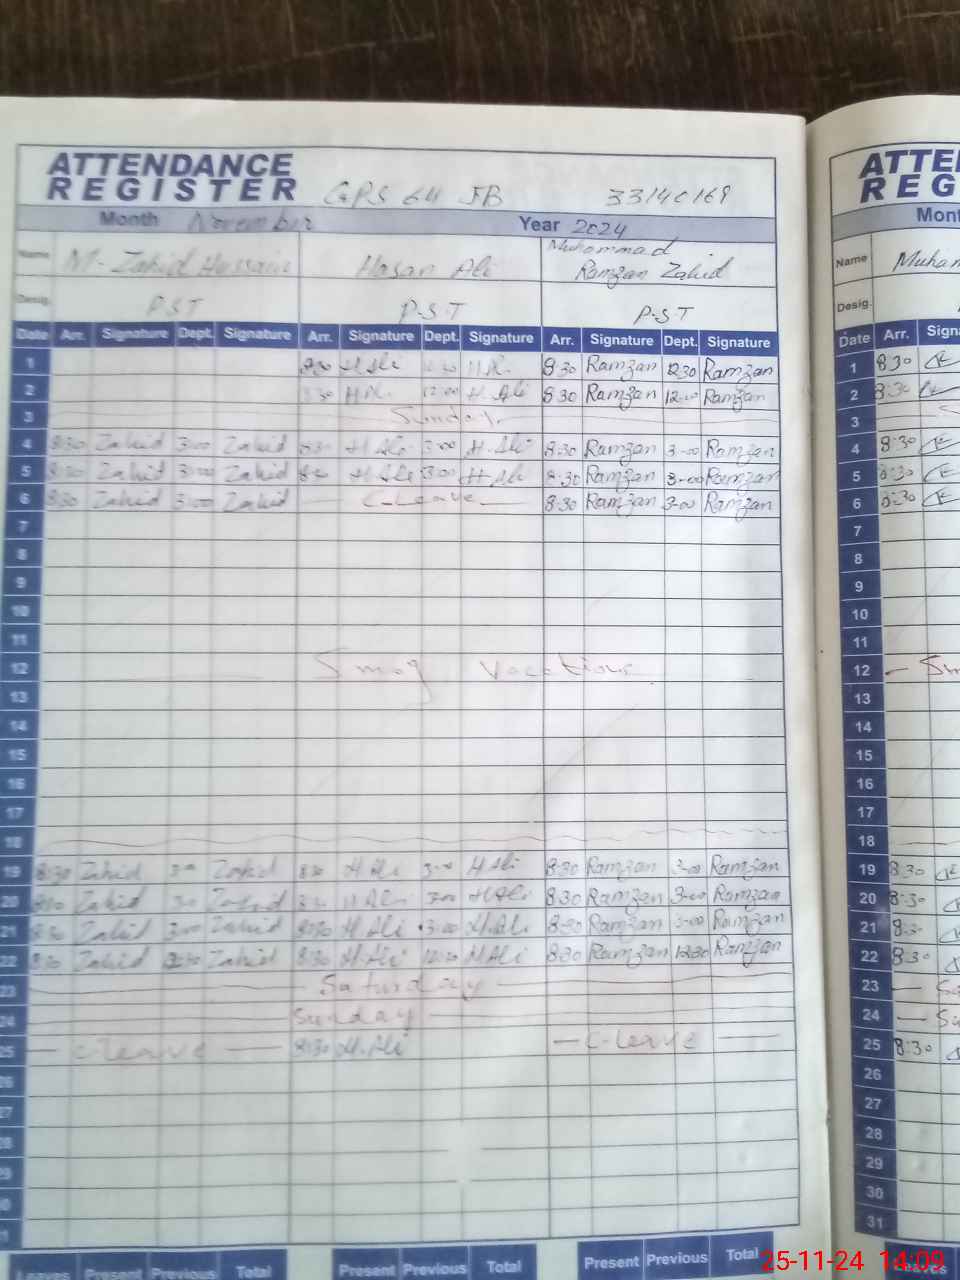 ATTENDANCE
REGISTER GPS 64 JB 33140169
Month November Year 2024
Name M. Zahid Hussain Hasan Ali Muhammad Ramzan Zahid
Desig. P.S.T P.S.T P.S.T
Date Arr. Signature Dept. Signature Arr. Signature Dept. Signature Arr. Signature Dept. Signature
1 8:30 H Ali H Ali 8:30 Ramzan 12:30 Ramzan
2 8:30 H Ali 12:00 H. Ali 8:30 Ramzan 12:00 Ramzan
3 Sunday
4 8:30 Zahid 3:00 Zahid 8:30 H Ali 3:00 H. Ali 8:30 Ramzan 3-00 Ramzan
5 8:30 Zahid 3:00 Zahid 8:30 H Ali 3:00 H Ali 8:30 Ramzan 3-00 Ramzan
6 8:30 Zahid 3:00 Zahid C-Leave 8:30 Ramzan 3-00 Ramzan
7
8
9
10
11
12 Smog vacations
13
14
15
16
17
18
19 8:30 Zahid 3:00 Zahid 8:30 H Ali 3:00 H Ali 8:30 Ramzan 3-00 Ramzan
20 Zahid Zahid 8:30 H Ali 3:00 H Ali 8:30 Ramzan 3-00 Ramzan
21 8:30 Zahid 3:00 Zahid 8:30 H Ali 3:00 H. Ali 8:30 Ramzan 3-00 Ramzan
22 8:30 Zahid Zahid 8:30 H. Ali 12:30 H Ali 8:30 Ramzan 12:30 Ramzan
23 Saturday
24 Sunday
25 C-Leave 8:30 H. Ali C-Leave
26
27
28
29
30
31
Leaves Present Previous Total Present Previous Total Present Previous Total
ATTE
REG
Mont
Name Muham
Desig.
Date Arr. Signa
1 8:30
2 8:30
3 S
4 8:30
5 8:30
6 8:30
7
8
9
10
11
12 Sm
13
14
15
16
17
18
19 8:30
20 8:30
21 8:30
22 8:30
23 Sa
24 Su
25 8:30
26
27
28
29
30
31
Leaves
25-11-24 14:09